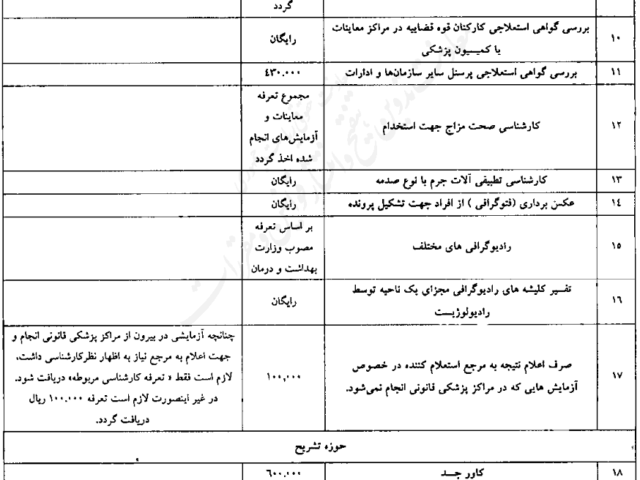 گردد
۱۰ بررسی گواهی استعلاجی کارکنان قوه قضاییه در مراکز معاینات رایگان
یا کمیسیون پزشکی
۱۱ بررسی گواهی استعلاجی پرسنل سایر سازمان‌ها و ادارات ۴۳۰.۰۰۰
۱۲ کارشناسی صحت مزاج جهت استخدام مجموع تعرفه
معاینات و
آزمایش‌های انجام
شده اخذ گردد
۱۳ کارشناسی تطبیقی آلات جرم با نوع صدمه رایگان
۱۴ عکس برداری (فتوگرافی ) از افراد جهت تشکیل پرونده رایگان
۱۵ رادیوگرافی های مختلف بر اساس تعرفه
مصوب وزارت
بهداشت و درمان
۱۶ تفسیر کلیشه های رادیوگرافی مجزای یک ناحیه توسط رایگان
رادیولوژیست
۱۷ صرف اعلام نتیجه به مرجع استعلام کننده در خصوص
آزمایش هایی که در مراکز پزشکی قانونی انجام نمی‌شود.
۱۰۰,۰۰۰
چنانچه آزمایشی در بیرون از مراکز پزشکی قانونی انجام و
جهت اعلام به مرجع نیاز به اظهار نظرکارشناسی داشت،
لازم است فقط « تعرفه کارشناسی مربوطه» دریافت شود.
در غیر اینصورت لازم است تعرفه ۱۰۰.۰۰۰ ریال
دریافت گردد.
حوزه تشریح
۱۸ کاور جسد ۶۰۰,۰۰۰